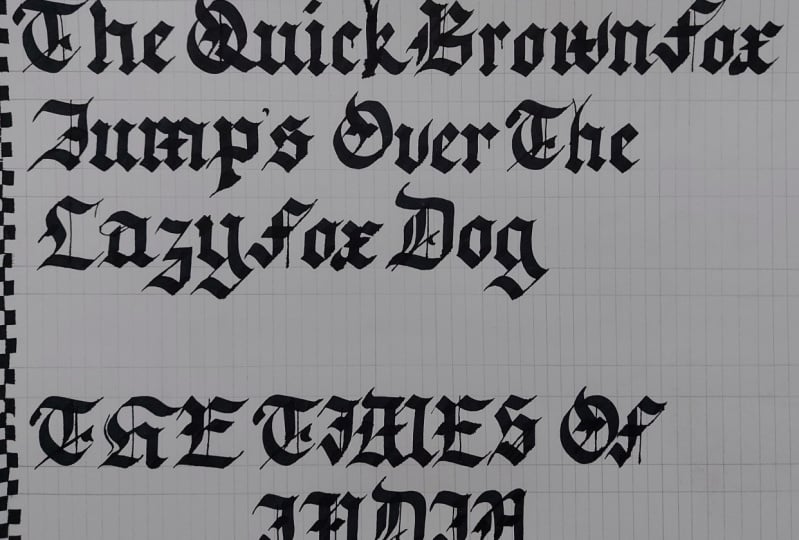 The Quick Brown Fox
Jump's Over The
Lazy Fox Dog
THE TIMES Of
INDIA